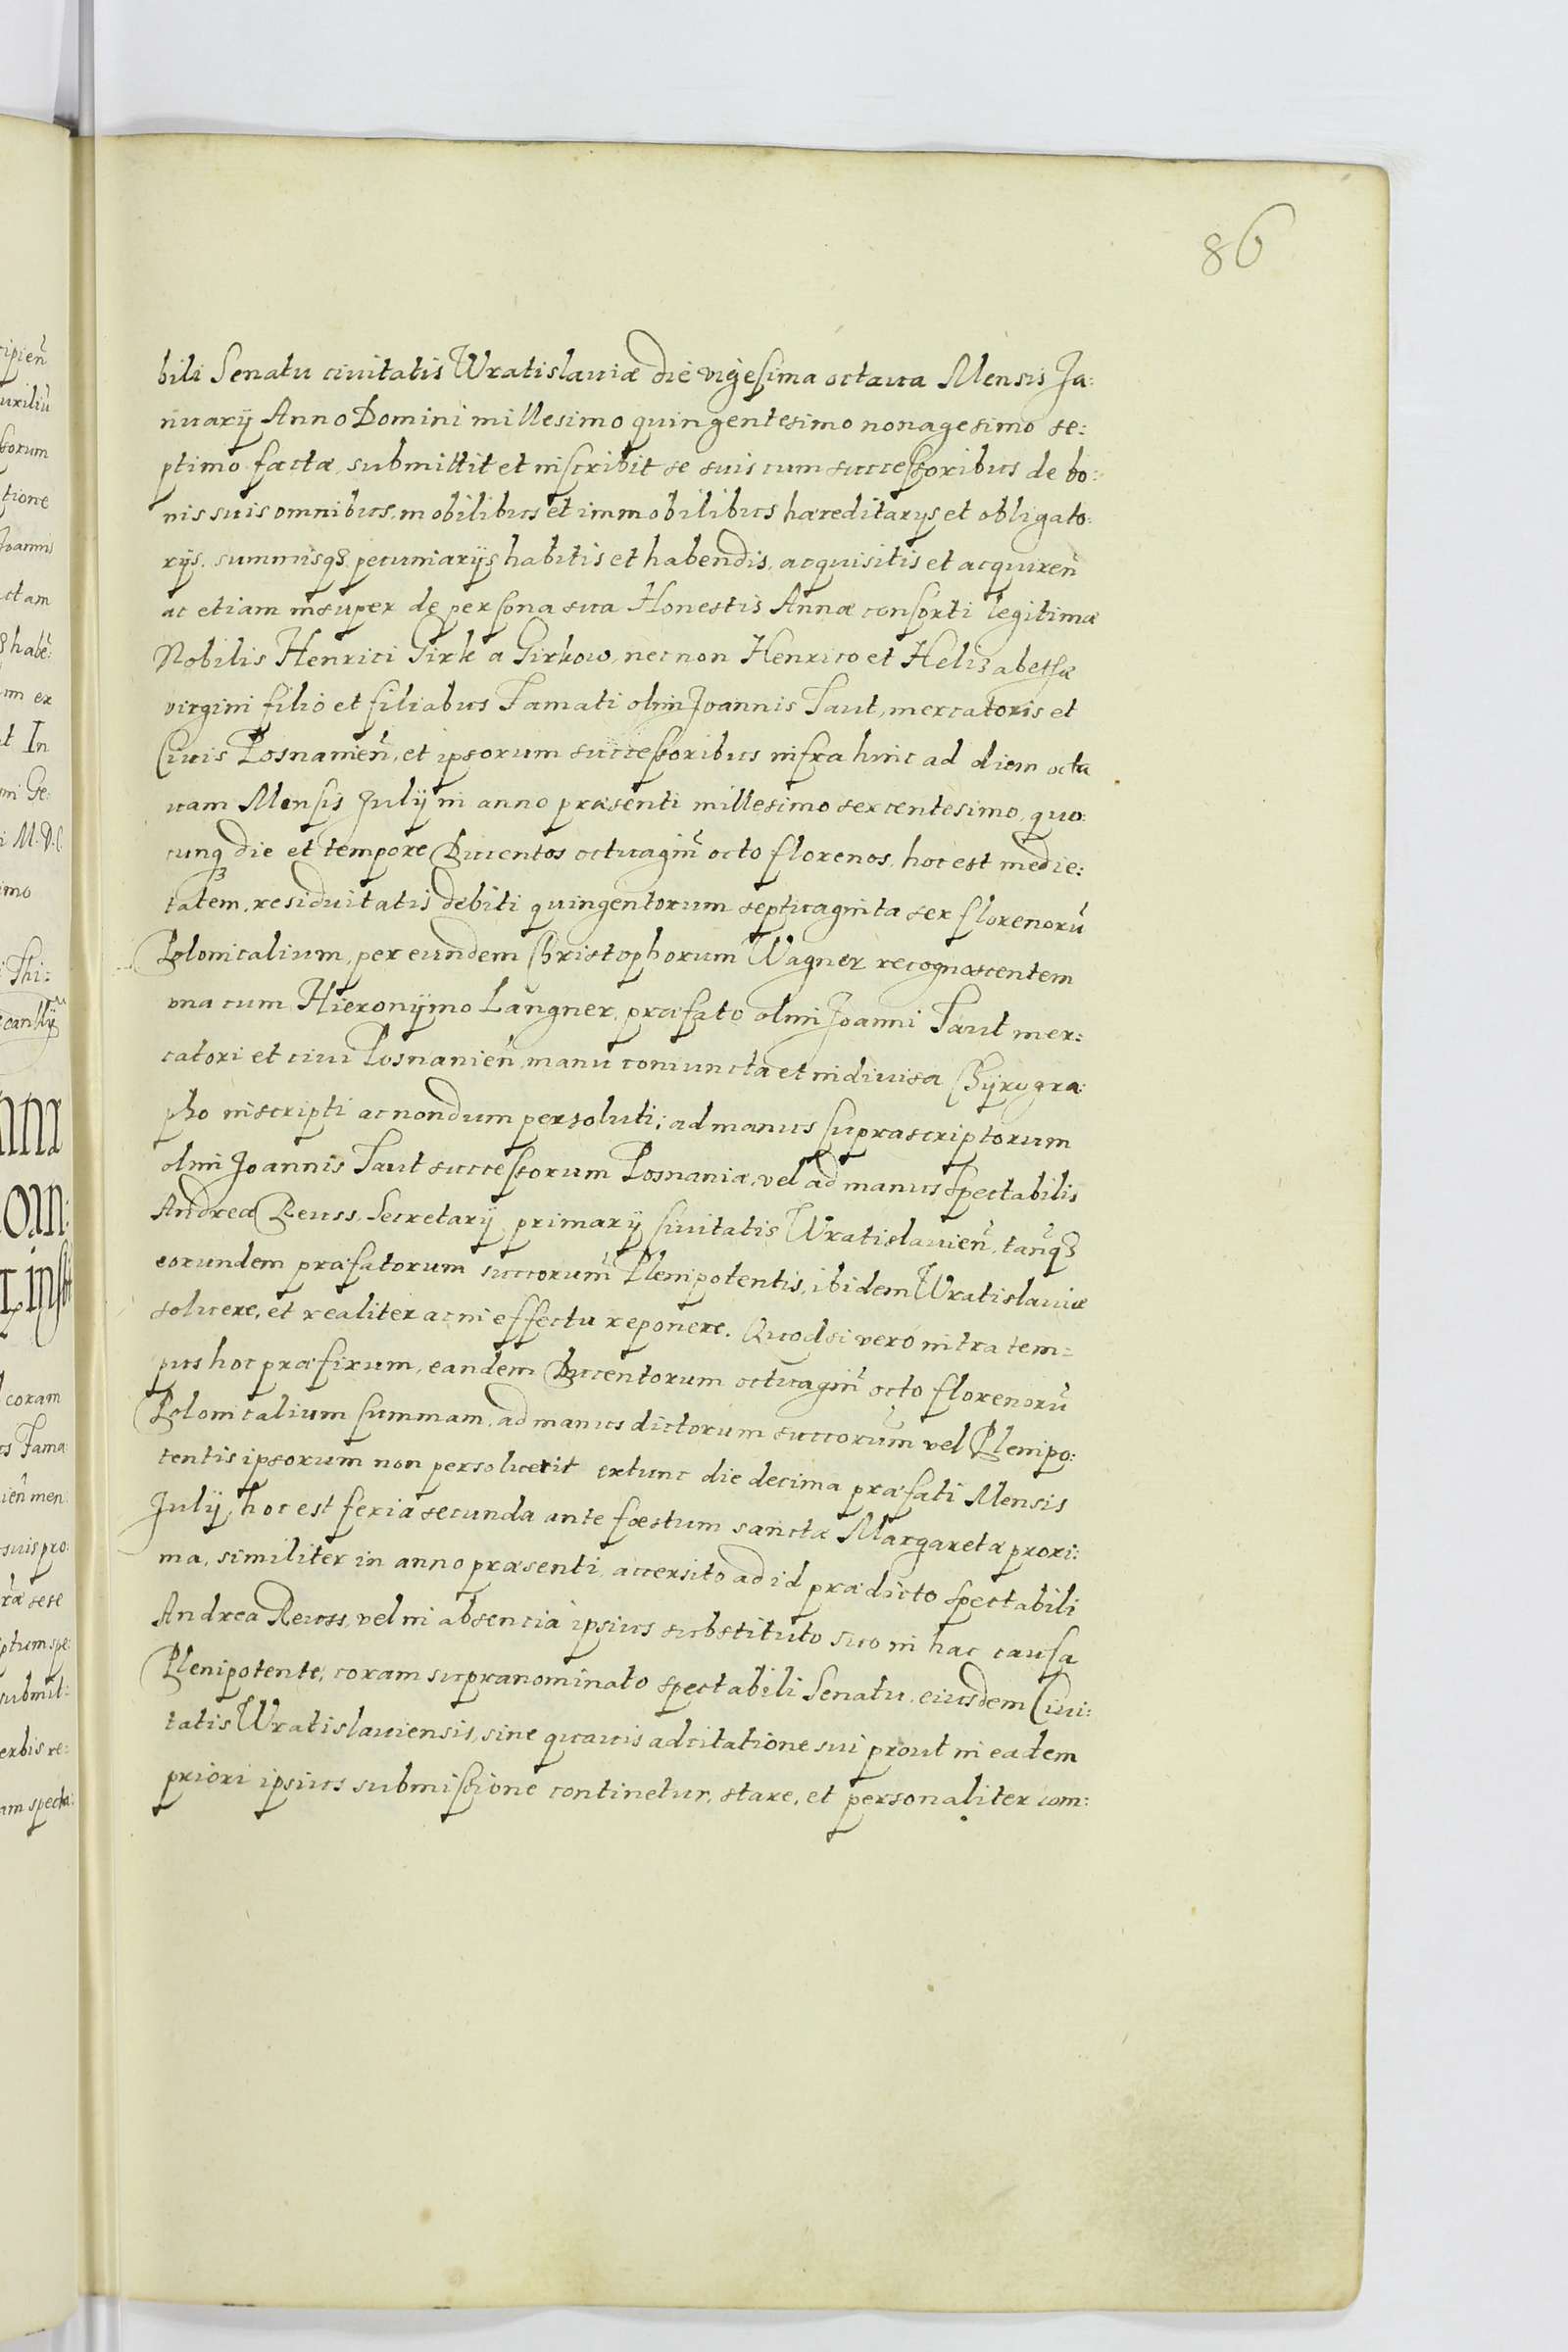 86
bili Senatu ciuitatis Wratislauiæ die vigesima octaua Mensis Ja:
nuarij Anno Domini millesimo quingentesimo nonagesimo se:
ptimo factæ, submittit et inscribit se suis cum successoribus de bo:
nis suis omnibus, mobilibus et immobilibus hæreditarijs et obligato:
rijs, summisq3 pecuniarijs habitis et habendis, acquisitis et acquireñ
ac etiam insuper de persona sua Honestis Annæ consorti legitimæ
Nobilis Henrici Girk a Girkow, necnon Henrico et Helizabethæ
virgini filio et filiabus Famati olim Joannis Taut, mercatoris et
Ciuis Posnanieñ, et ipsorum successoribus infra hinc ad diem octa
uam Mensis Julij in anno præsenti millesimo sexcentesimo, quo:
cunq3 die et tempore Ducentos octuagiñ octo florenos, hoc est medie:
tatem, residuitatis debiti quingentorum septuaginta sex florenorũ
Polonicalium, per eundem Christophorum Wagner recognoscentem
vna cum Hieronijmo Langner, præfato olim Joanni Taut mer:
catori et ciui Posnanieñ, manu coniuncta et indiuisa Chijrogra:
pho inscripti ac nondum persoluti; ad manus suprascriptorum
olim Joannis Taut successorum Posnaniæ, vel ad manus Spectabilis
Andreæ Reuss, Secretarij primarij Ciuitatis Wratislauieñ, tanq̃3
eorundem præfatorum succorum̃ Plenipotentis, ibidem Wratislauiæ
soluere, et realiter ac in effectu reponere. Quodsi verò intra tem=
pus hoc præfixum, eandem Ducentorum octuagiñ octo florenorũ
Polonicalium summam, ad manus dictorum succorum̃ vel Plenipo:
tentis ipsorum non persoluerit extunc die decima præfati Mensis
Julij, hoc est feria secunda ante fæstum sanctæ Margaretæ proxi:
ma, similiter in anno præsenti, accersito ad id prædicto spectabili
Andrea Reuss, vel in absencia ipsius substituto suo in hac causa
Plenipotente, coram supranominato spectabili Senatu, eiusdem Ciui:
tatis Wratislauiensis, sine quauis adcitatione sui prout in eadem
priori ipsius submissione continetur, stare, et personaliter com: